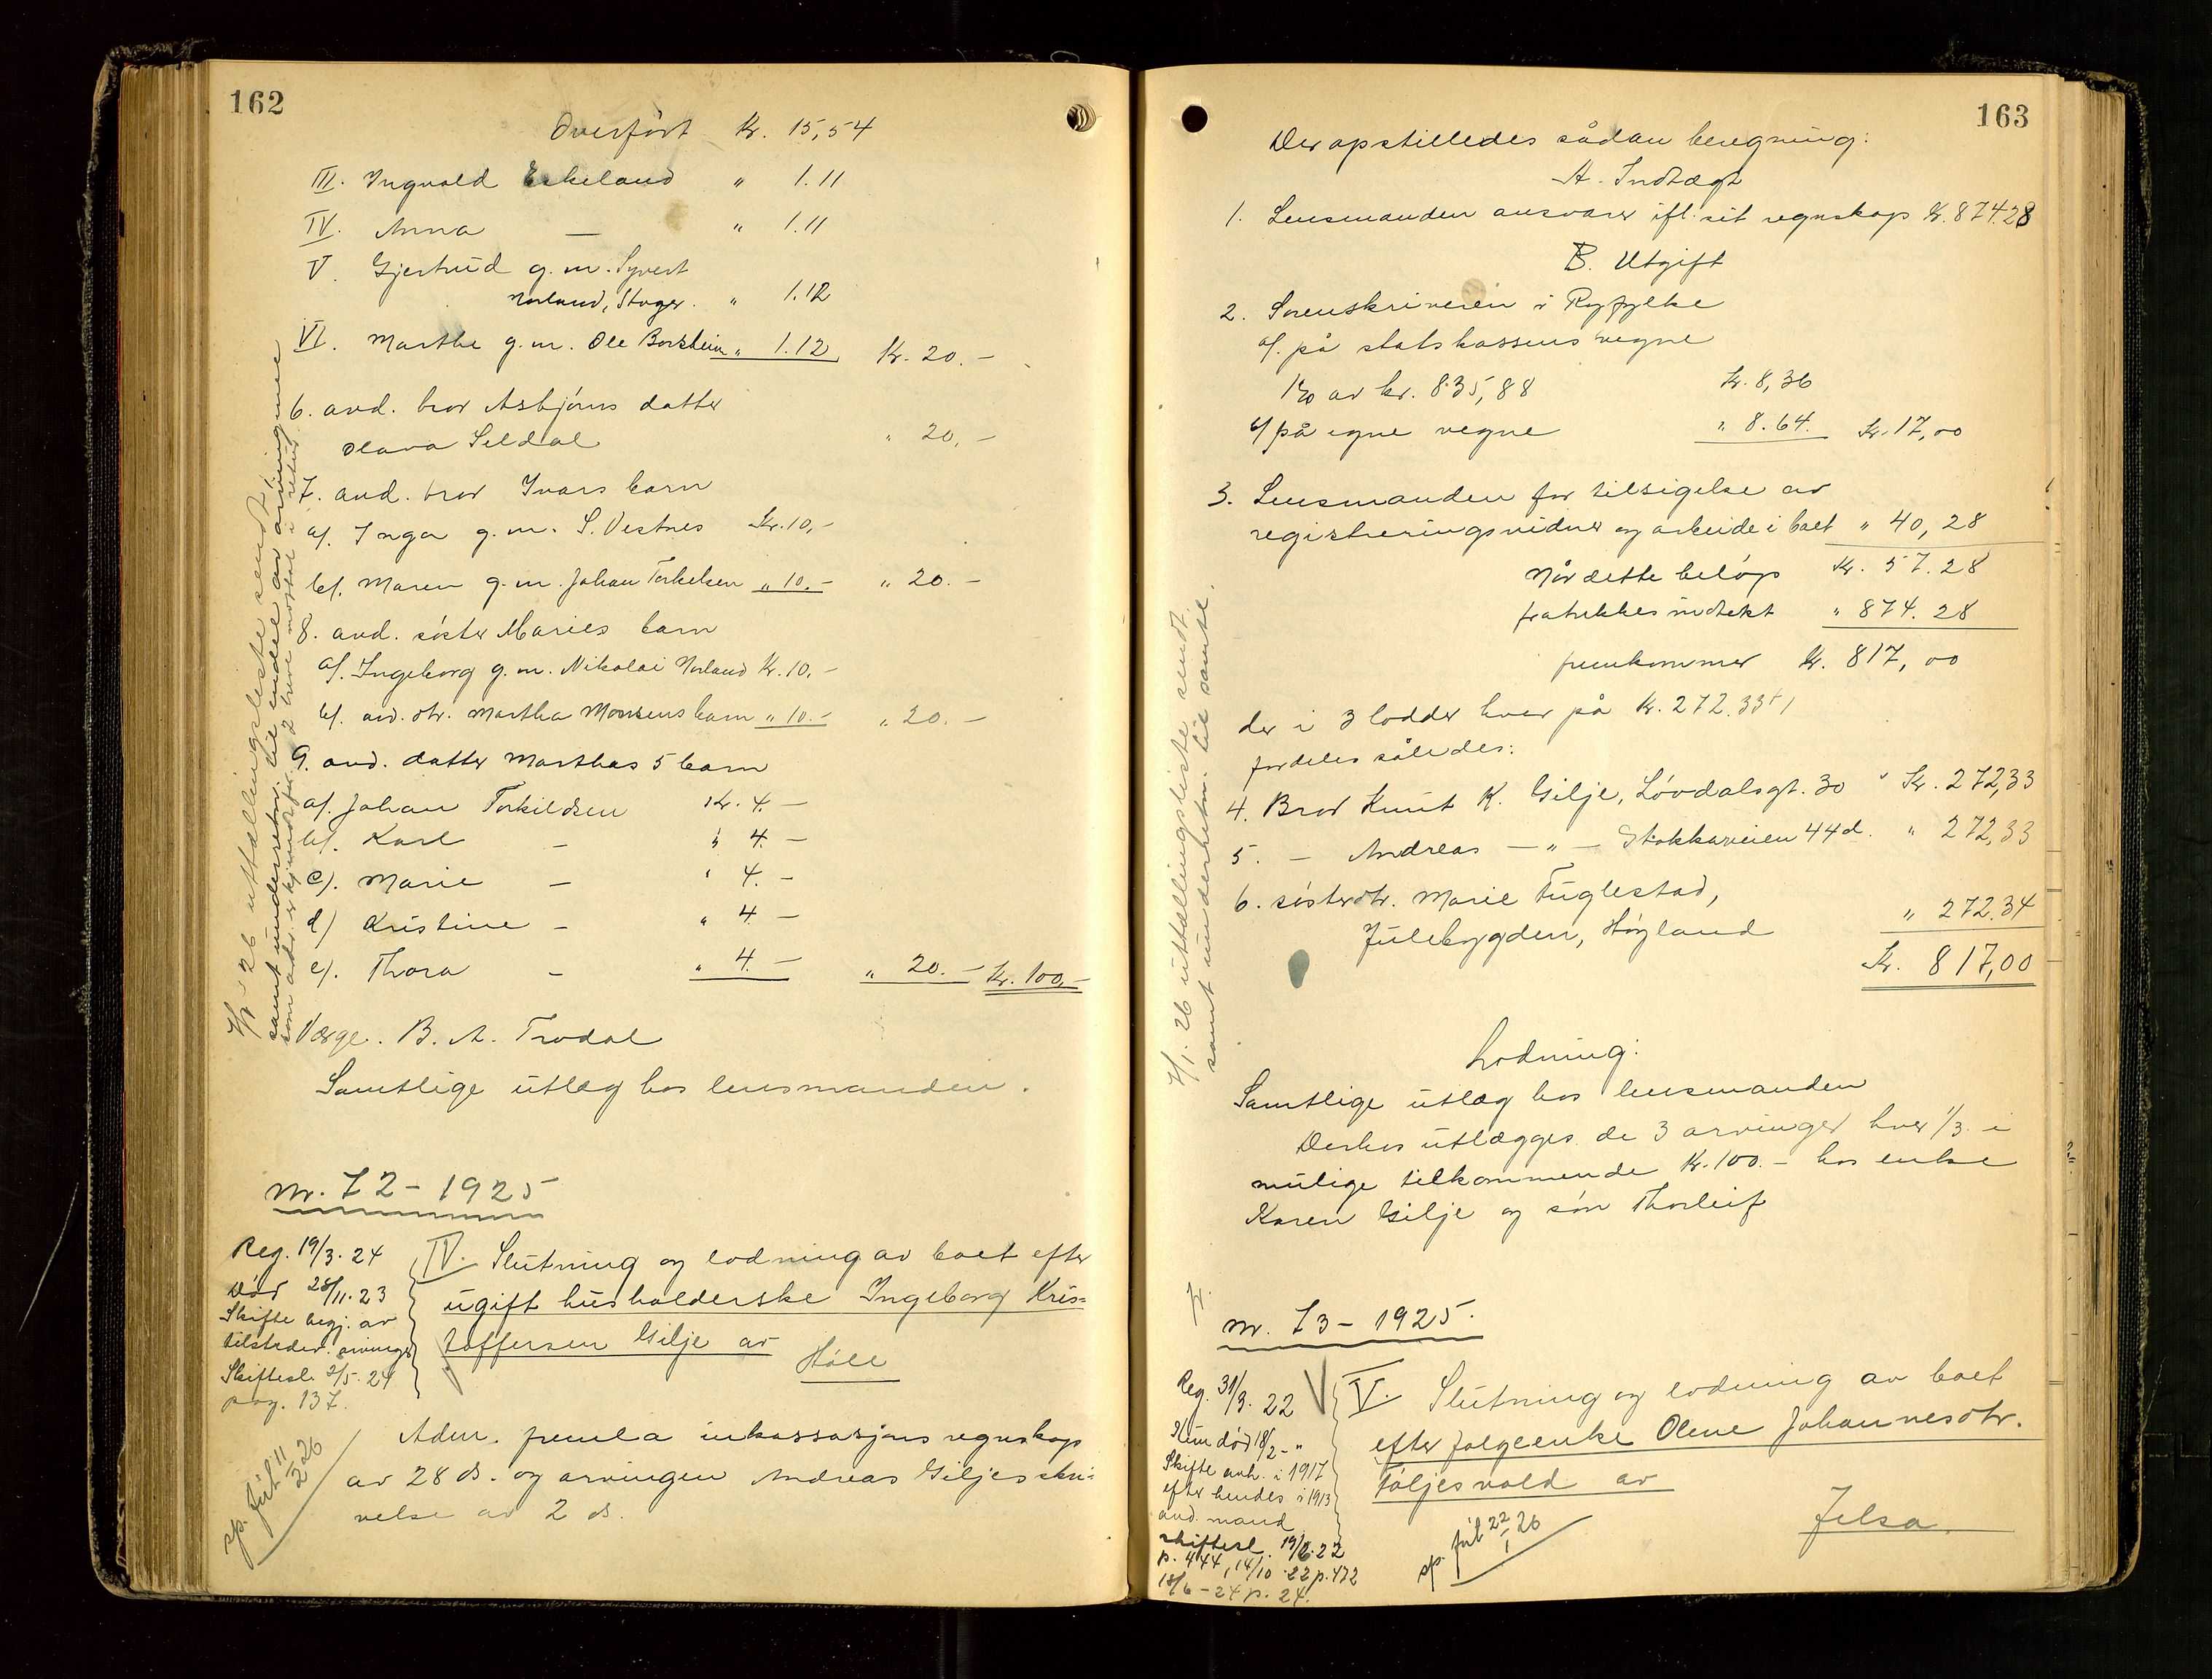 162
Overført Kr. 15,54
III. Ingvald Eskeland " 1.11
IV. Anna — " 1.11
V. Gjertrud g.m. Syvert
Norland, Stvger. " 1.12
VI. Marthe g.m. Ole Borshein " 1.12 Kr. 20.-
6. avd. bror Asbjørns datter
Olava Seldal " 20,-
7. avd. bror Ivars barn
a/. Inga g.m. S. Vestnes Kr. 10,-
b/. Maren g.m. Johan Torkelsen " 10.- " 20.-
8. avd. søster Maries barn
a/. Ingeborg g.m. Nikolai Norland Kr. 10.-
b/. avd. dtr. Martha Monsens barn " 10.- " 20.-
9. avd. datter Marthas 5 barn
a/. Johan Torkildsen Kr. 4.-
b/. Karl — " 4.-
c/. Marie — " 4.-
d/ Kristine — " 4.-
e/. Thora — " 4.- " 20.- Kr. 100.-
Verge. B. A. Trodal
Samtlige utlæg hos lensmanden.
26 uttællingsliste sendt
samt underretn. til endel av arvingene
nr. 72 - 1925
Reg. 19/3. 24
Død 28/11. 23
Skifte begj. av
tilstedev. arvinger
Skiftesl. 2/5. 24
pag. 137.
IV. Slutning og lodning av boet efter
ugift husholderske Ingeborg Kris-
toffersen Gilje av
Høle
sp. jul 11/2 26
Adm. fremla inkassasjons regnskap
av 28 ds. og arvingen Andreas Giljes skri-
velse av 2 ds.
163
Der opstilledes sådan beregning:
A. Indtægt
1. Lensmanden ansvarer ifl. sit regnskap Kr. 874.28
B. Utgift
2. Sorenskriveren i Ryfylke
a/. på statskassens vegne
1% av kr. 835,88 Kr. 8,36
b/ på egne vegne " 8.64. Kr. 17,00
3. Lensmanden for tilsigelse av
registreringsvidner og arbeide i boet " 40,28
Når dette beløp Kr. 57.28
fratrekkes indtekt " 874.28
fremkommer Kr. 817,00
der i 3 lodder hver på Kr. 272.33+1
fordeles således:
4. Bror Knut K. Gilje, Løvdalsgt. 30 Kr. 272,33
5. — Andreas — " — Stokkaveien 44d. " 272,33
6. søsterdtr. Marie Fuglestad,
Julebygden, Høyland " 272.34
Kr. 817,00
7/1. 26 uttællingsliste sendt
samt underretn. til samtl.
Lodning:
Samtlige utlæg hos lensmanden
Derhos utlægges de 3 arvinger hver 1/3 i
mulige tilkommende Kr. 100.- hos enke
Karen Gilje og søn Thorleif
nr. 73 - 1925.
Reg. 31/3. 22
Hun død 18/2 - "
Skifte anh. i 1917
efter hendes i 1913
avd. mand
skiftesl. 19/6. 22
p. 444, 14/10 22 p. 472
18/6 - 24 p. 24.
V. Slutning og lodning av boet
efter folgeenke Olene Johannesdtr.
Føljesvold av
Jelsa.
sp. jul 22/1 26